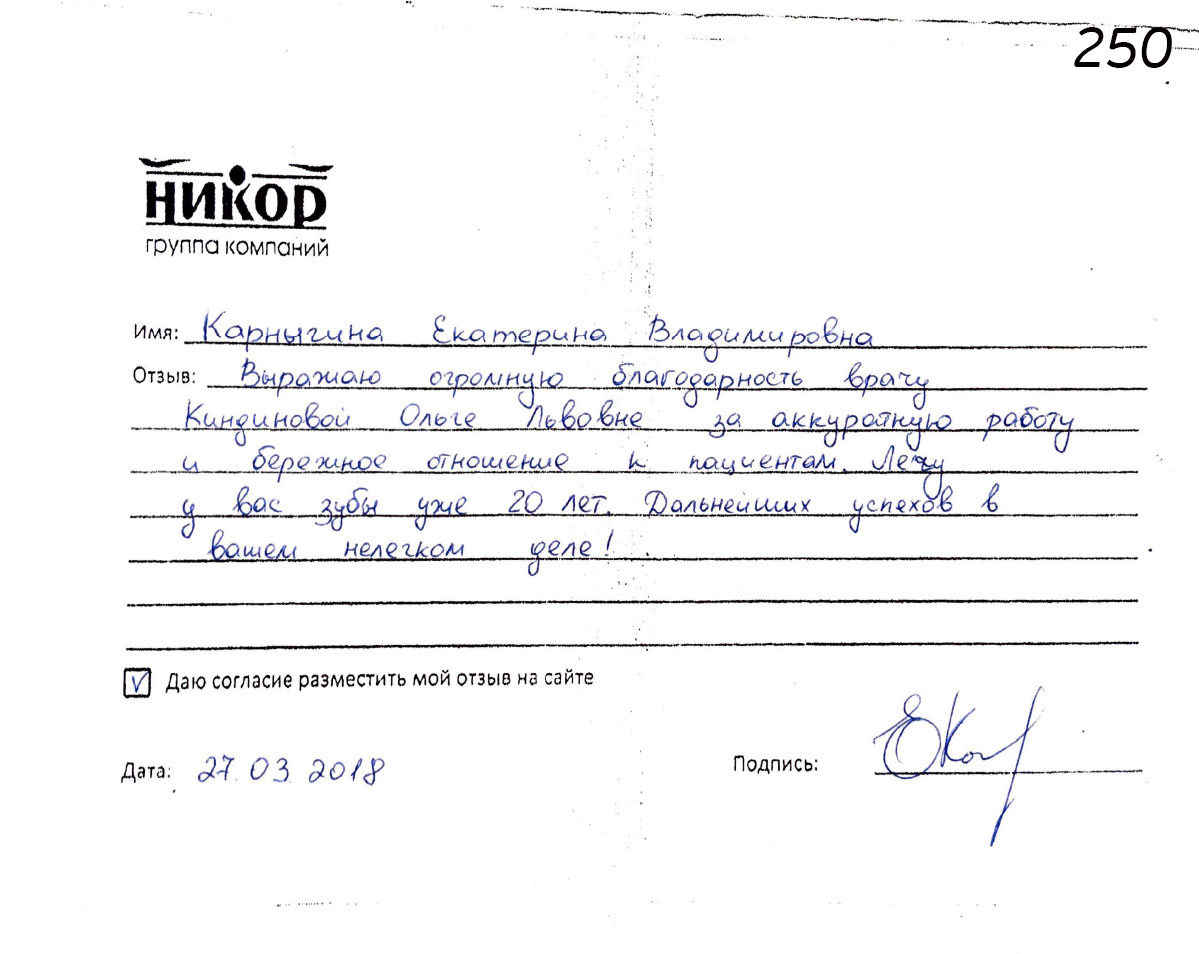 250
НИКОР
группа компаний
Имя: Карныгина Екатерина Владимировна
Отзыв: Выражаю огромную благодарность врачу
Киндиновой Ольге Львовне за аккуратную работу
и бережное отношение к пациентам. Лечу
у вас зубы уже 20 лет. Дальнейших успехов в
вашем нелегком деле!
V Даю согласие разместить мой отзыв на сайте
Дата: 27.03.2018 Подпись: